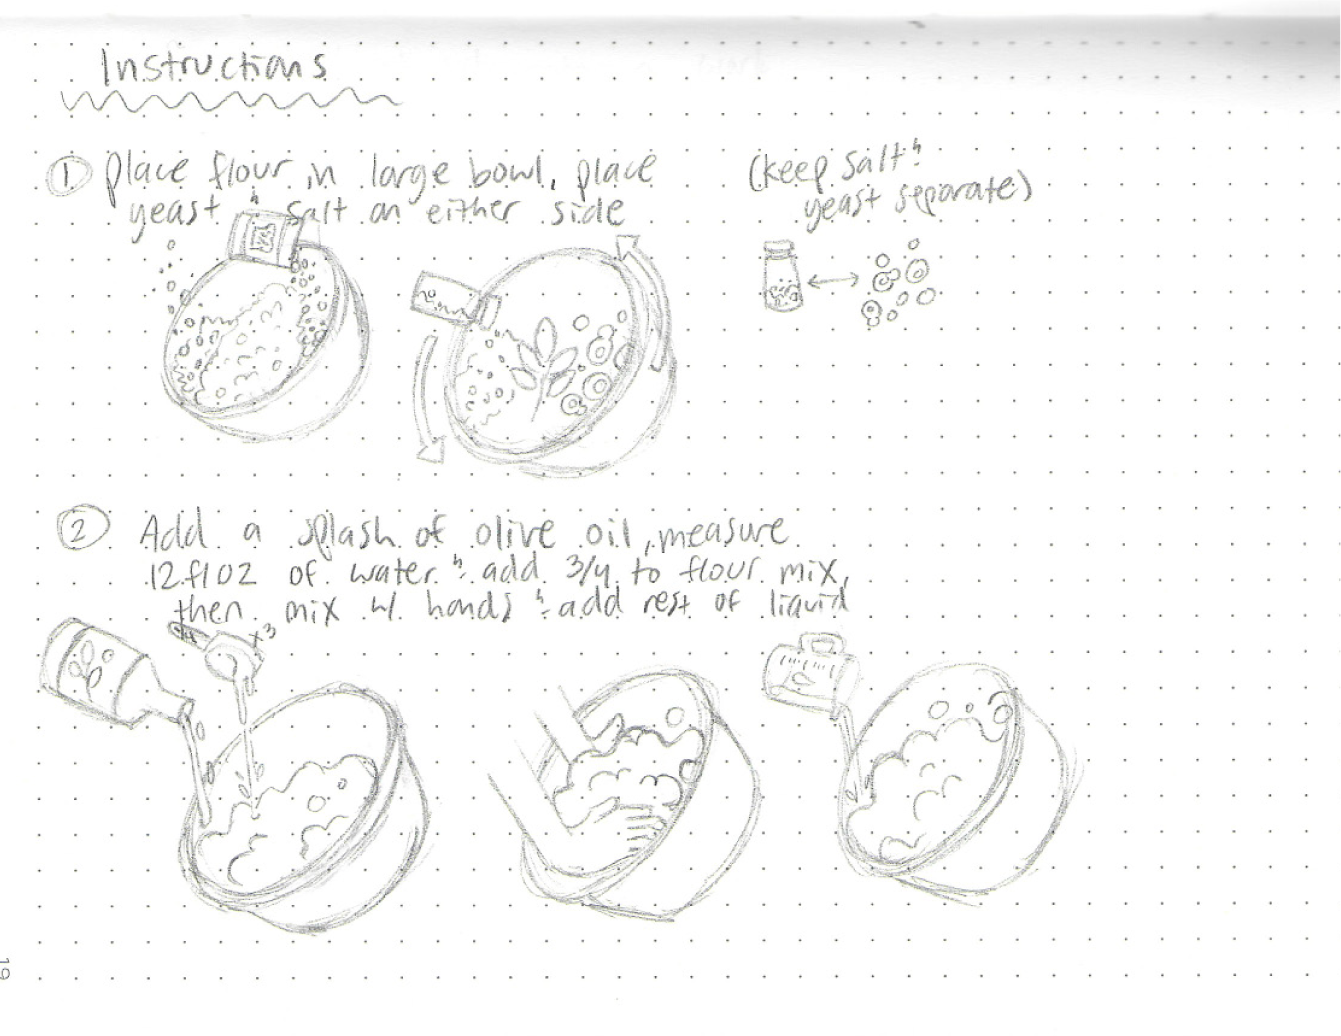 Instructions
① place flour in large bowl, place
yeast & salt on either side
(keep salt &
yeast separate)
② Add a splash of olive oil, measure
12 fl oz of water & add 3/4 to flour mix,
then mix w/ hands & add rest of liquid
x3
19